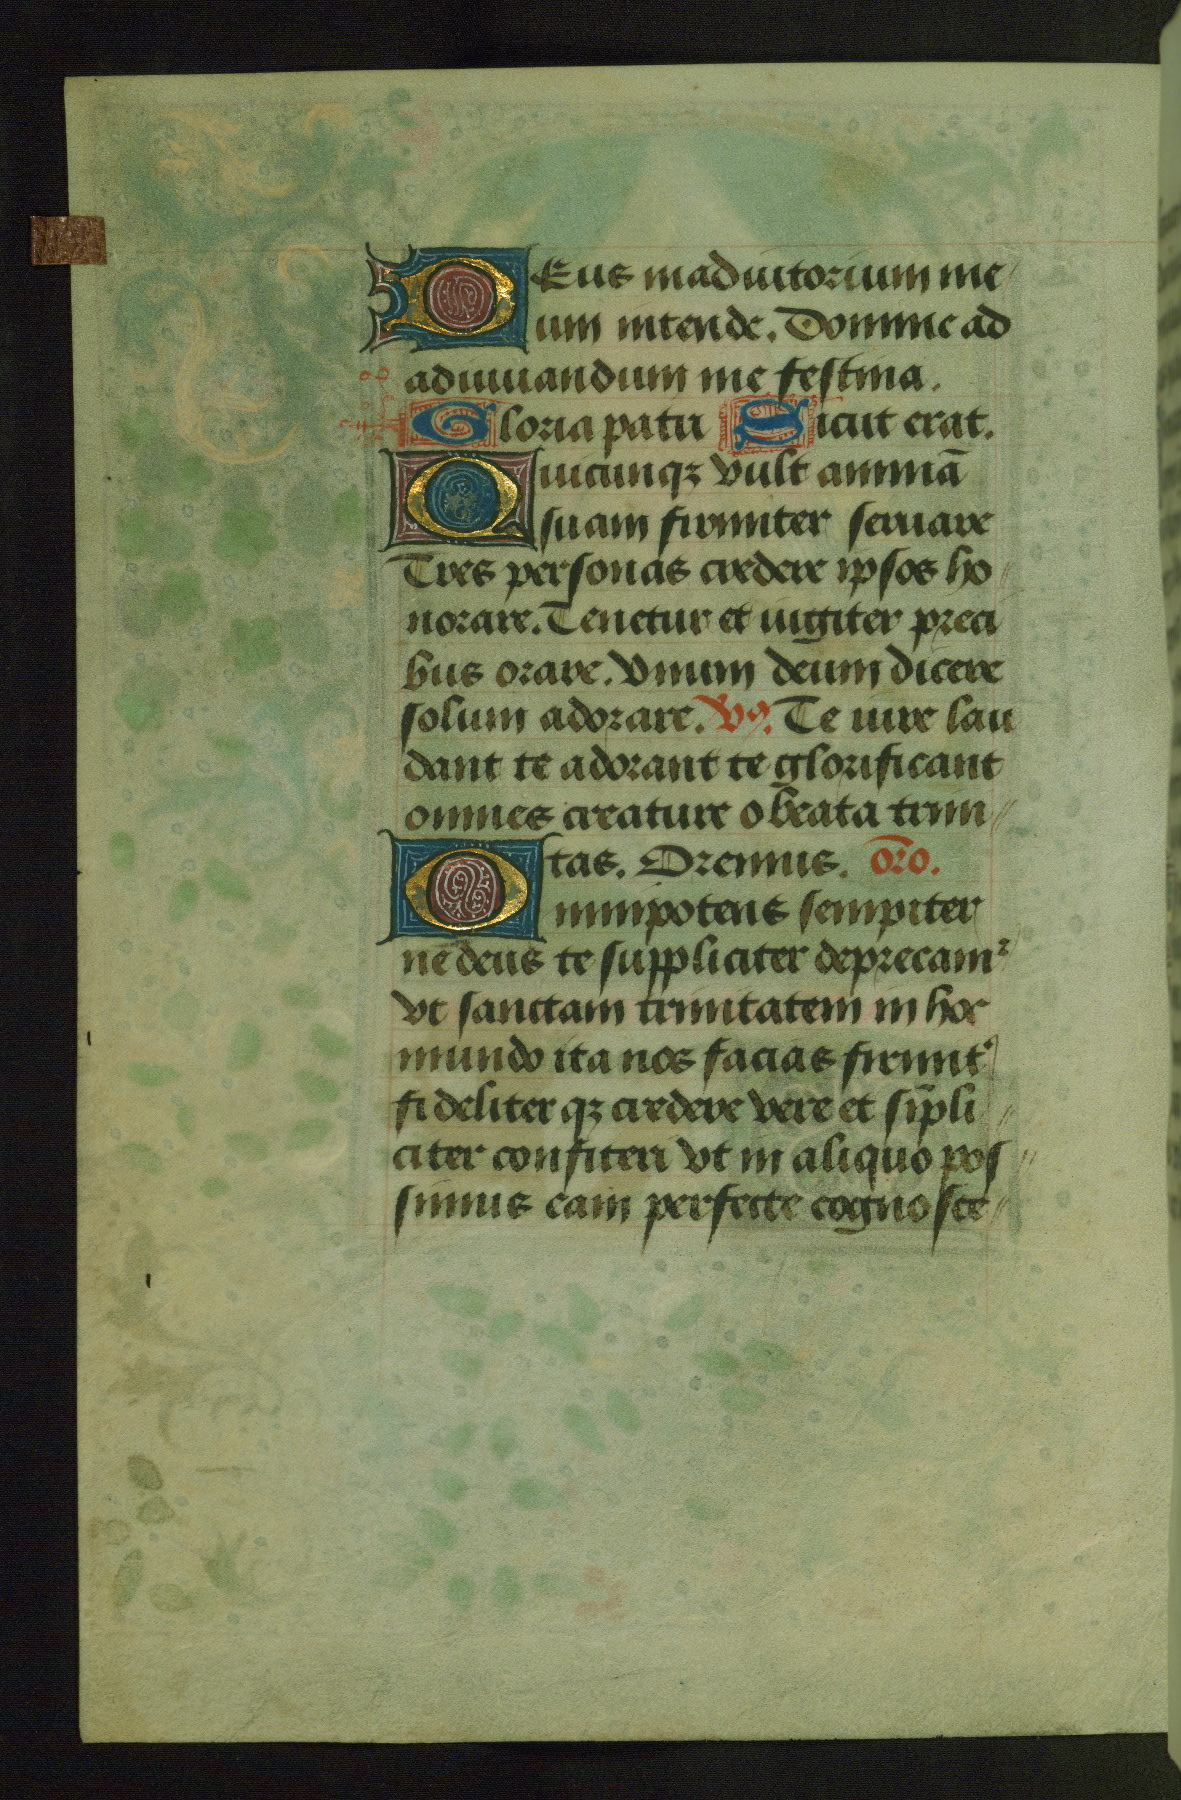 DEus in adiutorium me
um intende. Domine ad
adiuuandum me festina.
Gloria patri Sicut erat.
Quicunqꝫ vult animā
suam firmiter seruare
Tres personas credere ipsos ho
norare. Tenetur et iugiter preci
bus orare. Vnum deum dicere
solum adorare. Vꝰ. Te iure lau
dant te adorant te glorificant
omnes creature o beata trini
tas. Oremus. Oro.
Omnipotens sempiter
ne deus te suppliciter deprecamꝛ
vt sanctam trinitatem in hoc
mundo ita nos facias firmit᾽
fideliter qꝫ credere vere et sīpli
citer confiteri vt in aliquo pos
simus eam perfecte cognosce